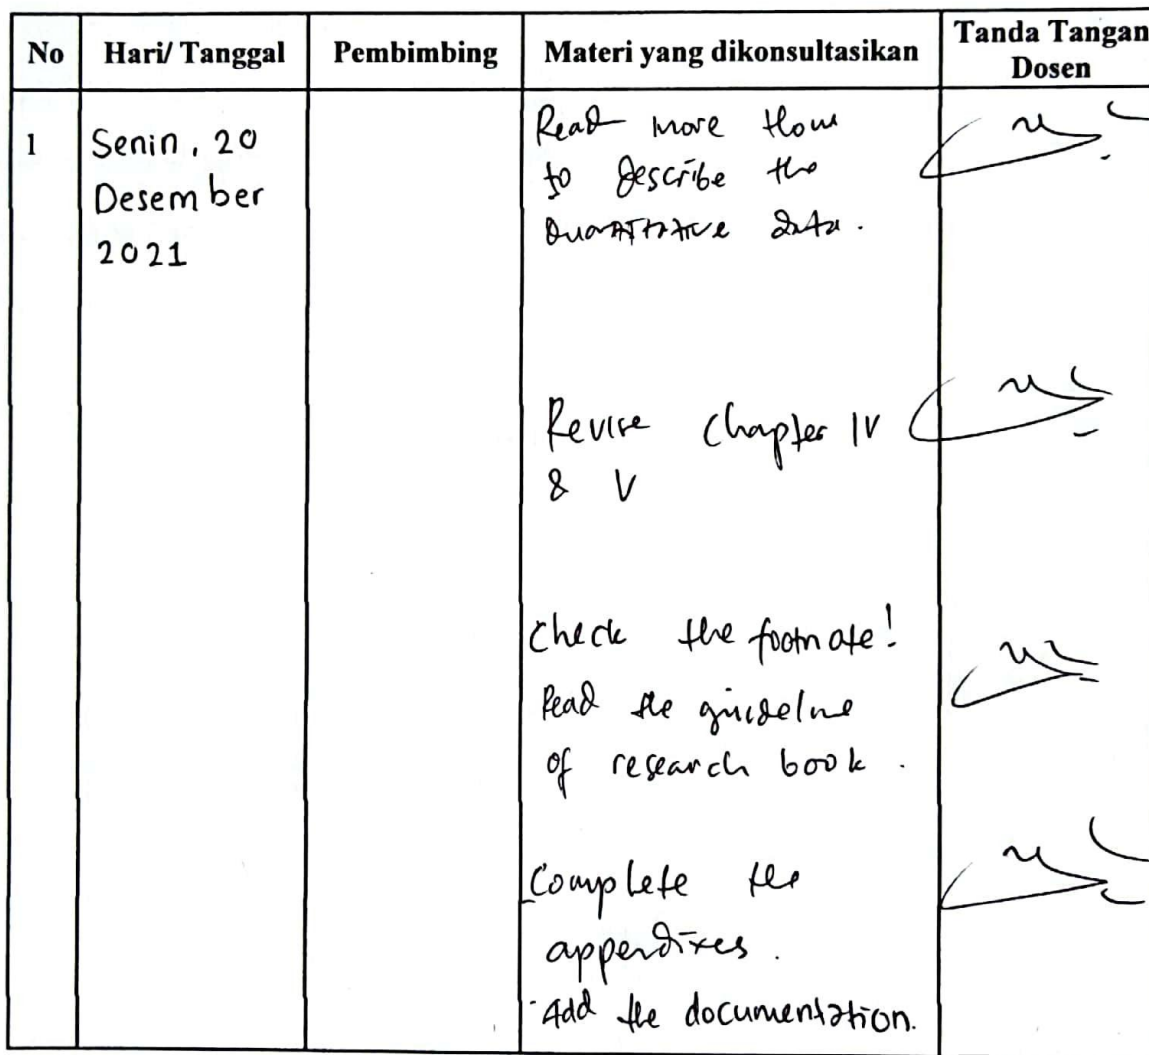 No Hari/ Tanggal Pembimbing Materi yang dikonsultasikan Tanda Tangan
Dosen
1 Senin, 20 Read more How
Desember to describe the
2021 Quantitative data.
Revise Chapter IV
& V
Check the footnote!
Read the guideline
of research book.
Complete the
appendixes.
- Add the documentation.